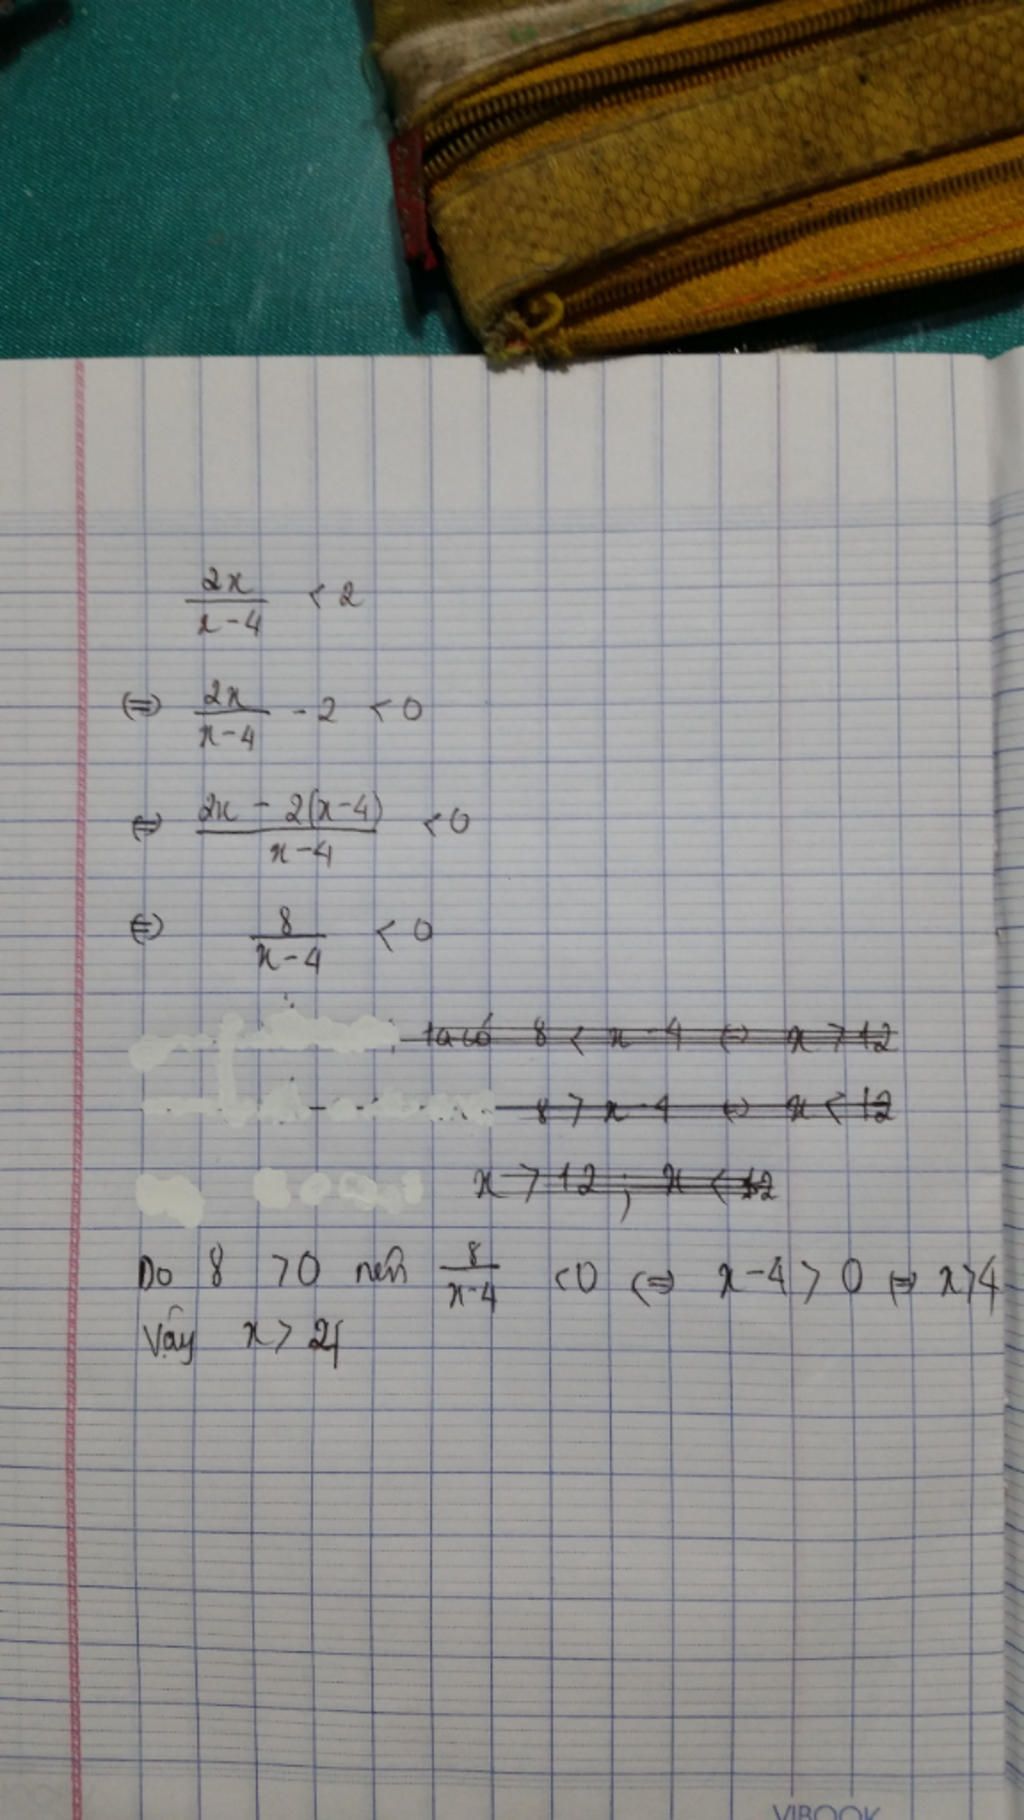 2x/x-4 < 2
⇔ 2x/x-4 - 2 < 0
⇔ 2x - 2(x-4)/x-4 < 0
⇔ 8/x-4 < 0
ta có 8 < x-4 ⇔ x > 12
8 > x-4 ⇔ x < 12
x > 12 ; x < 12
Do 8 > 0 nên 8/x-4 < 0 ⇔ x-4 > 0 ⇔ x > 4
Vậy x >
VIBOOK